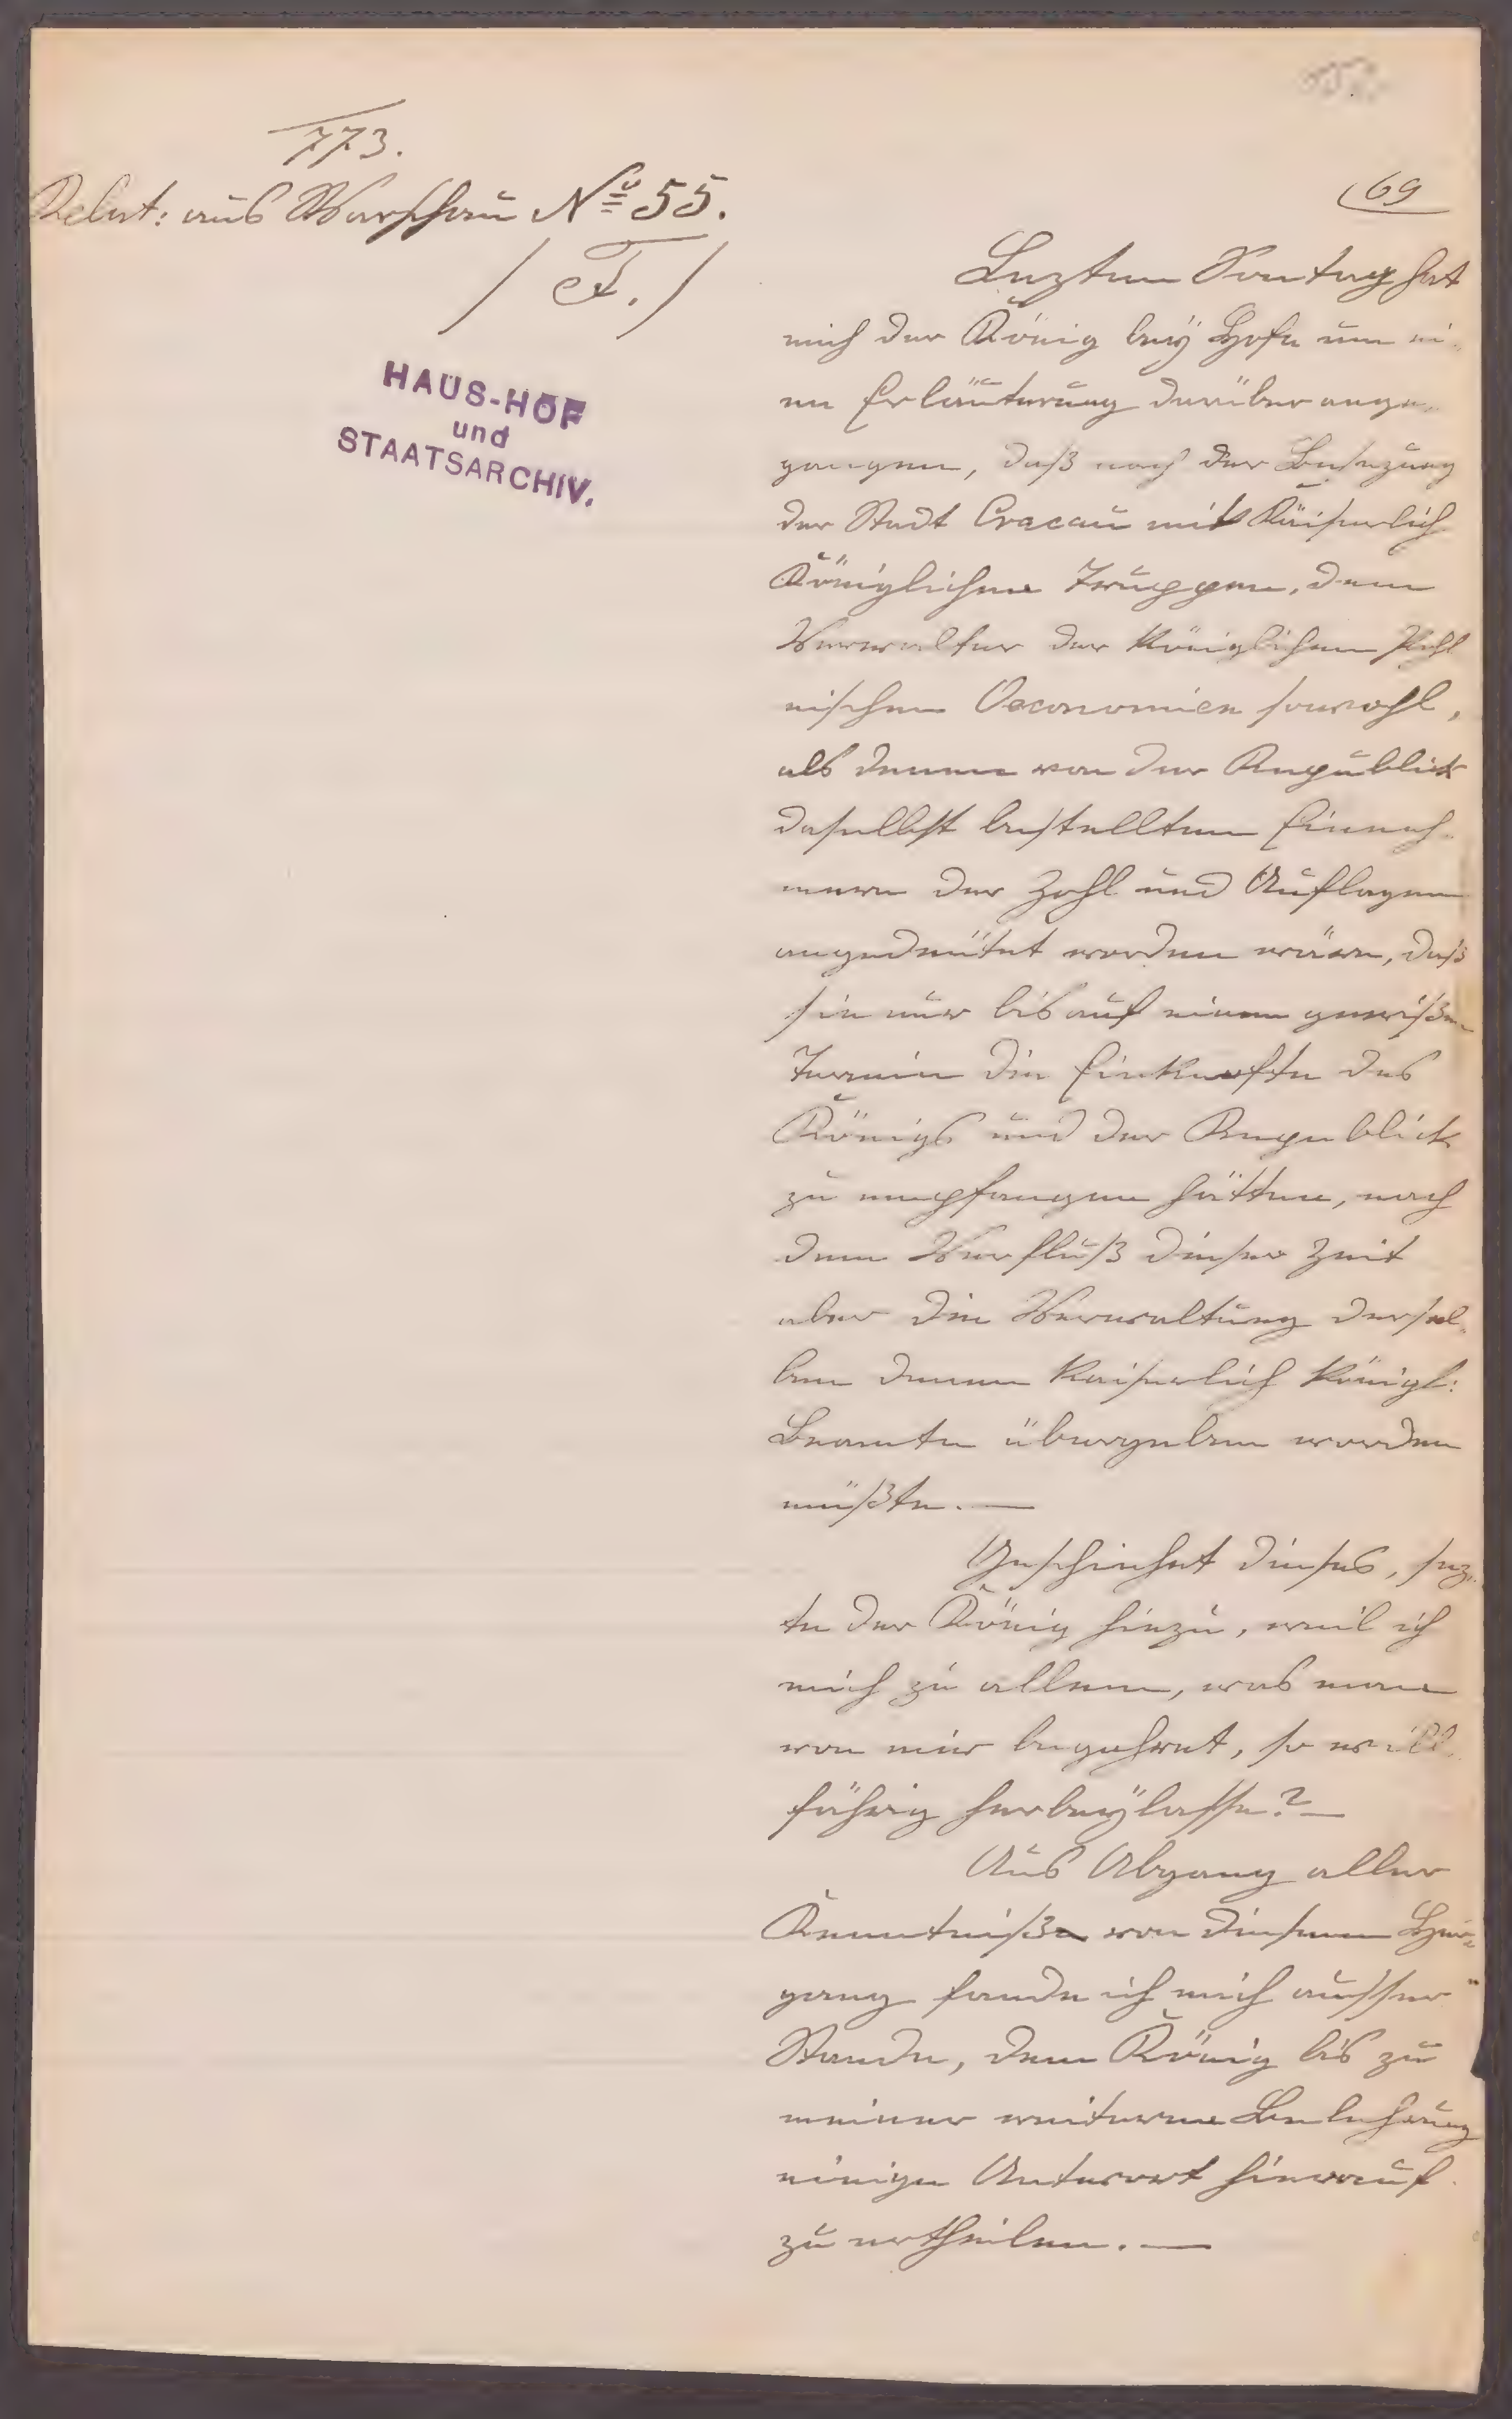 773.
Relat: aus Warschau No 55.
/ F. /
HAUS-HOF
und
STAATSARCHIV.
69
Lezten Sontag hat
mich der König beÿ Hofe um ei-
ne Erläuterung darüber ange-
gangen, daß nach der Besezung
der Stadt Cracau mit Kaiserlich
Königlichen Truppen, dem
Verwalter der Königlichen Pohl
nischen Oeconomien sowohl,
als denen von der Republick
daselbst bestellten Einneh-
mern der Zohl und Auflagen
angedeütet worden wären, daß
sie nur bis auf einen gewißen
Termin die Einkunfte des
Königs und der Republick
zu empfangen hätten, nach
dem Verfluß dieser Zeit
aber die Verwaltung dersel-
ben denen Kaiserlich Königl:
Beamte übergeben worden
müßte. —
Geschiehet dieses, sez-
te der König hinzu, weil ich
mich zu allem, was man
von mir begehret, so will-
fährig herbeÿlasse? —
Aus Abgang aller
Kenntniße von diesem Her-
gang fande ich mich ausser
Stande, dem König bis zu
meiner weiteren Belehrung
einige Antwort hierauf
zu ertheilen. —